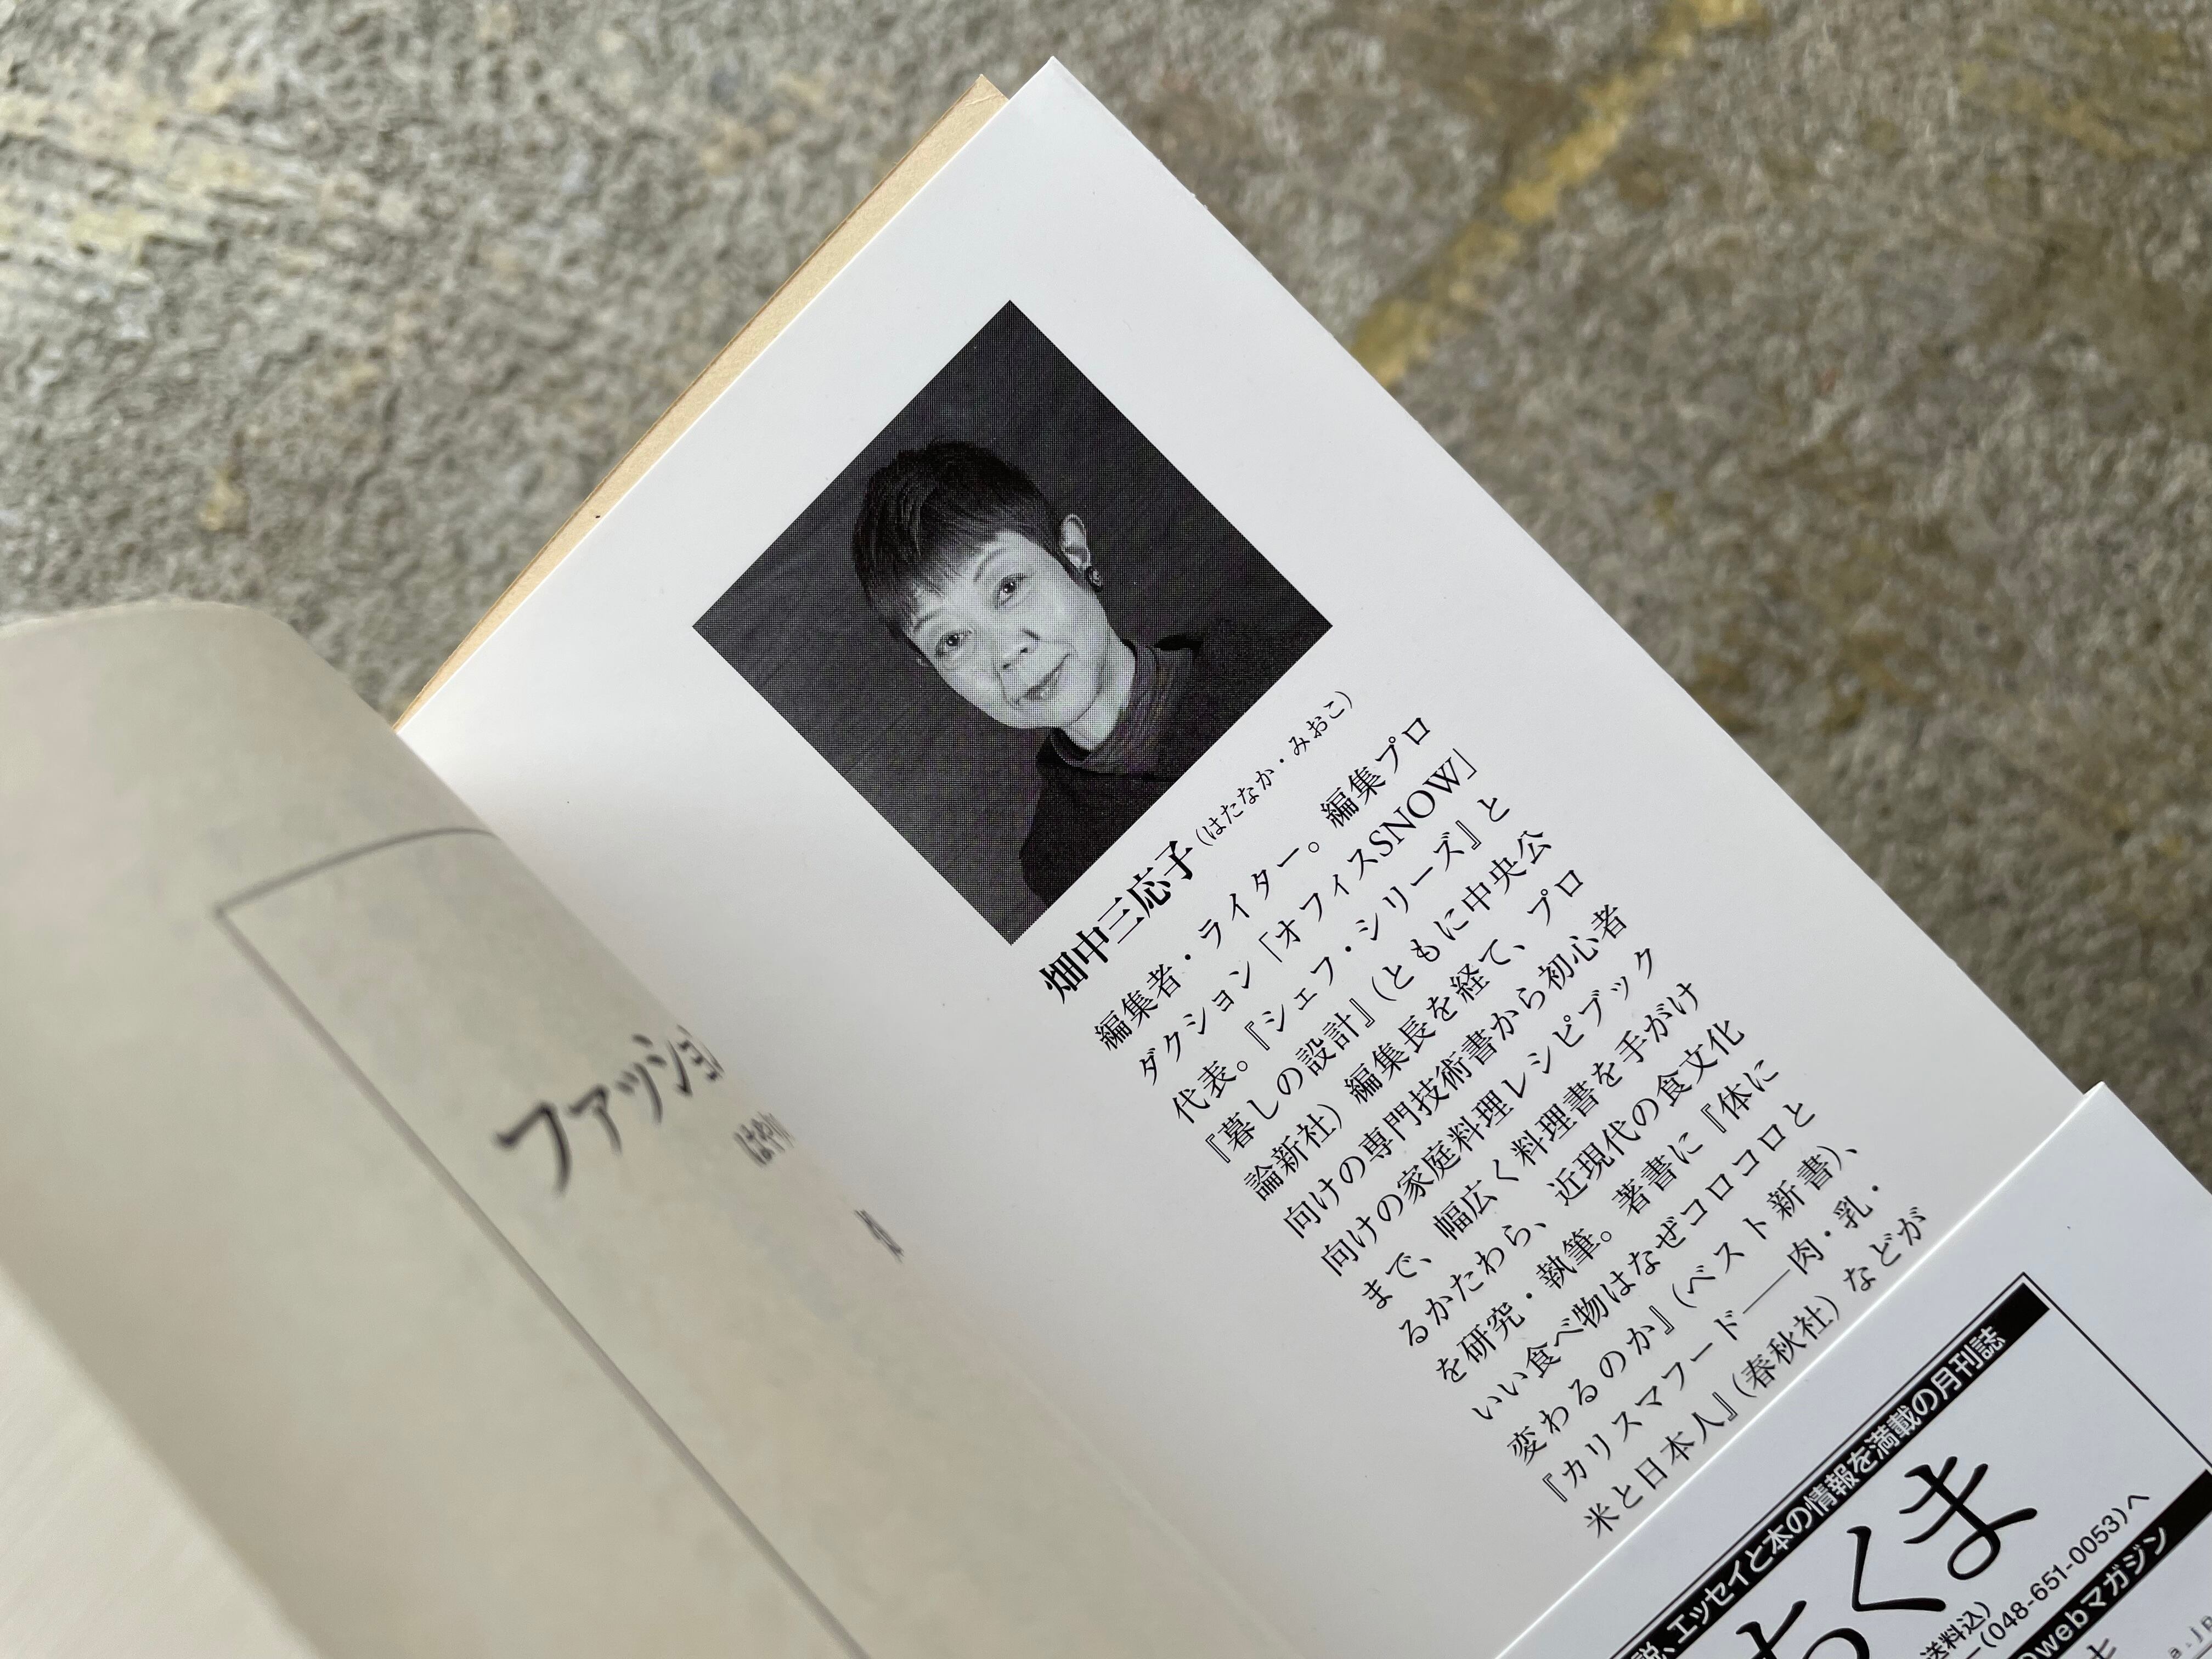 ファッショ
畑中三応子(はたなか・みおこ)
編集者・ライター。編集プロ
ダクション「オフィスSNOW」
代表。『シェフ・シリーズ』と
『暮しの設計』(ともに中央公
論新社)編集長を経て、プロ
向けの専門技術書から初心者
向けの家庭料理レシピブック
まで、幅広く料理書を手がけ
るかたわら、近現代の食文化
を研究・執筆。著書に『体に
いい食べ物はなぜコロコロと
変わるのか』(ベスト新書)、
『カリスマフード──肉・乳・
米と日本人』(春秋社)などが
説、エッセイと本の情報を満載の月刊誌
ちくま
送料込)
(048-651-0053)へ
webマガジン